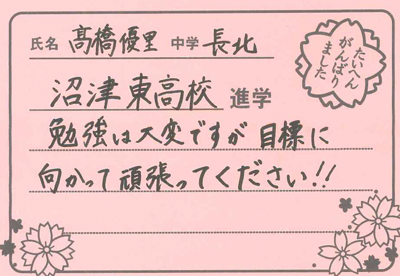 氏名 髙橋優里 中学 長北
たいへん
がんばり
ました
沼津東高校 進学
勉強は大変ですが目標に
向かって頑張ってください!!